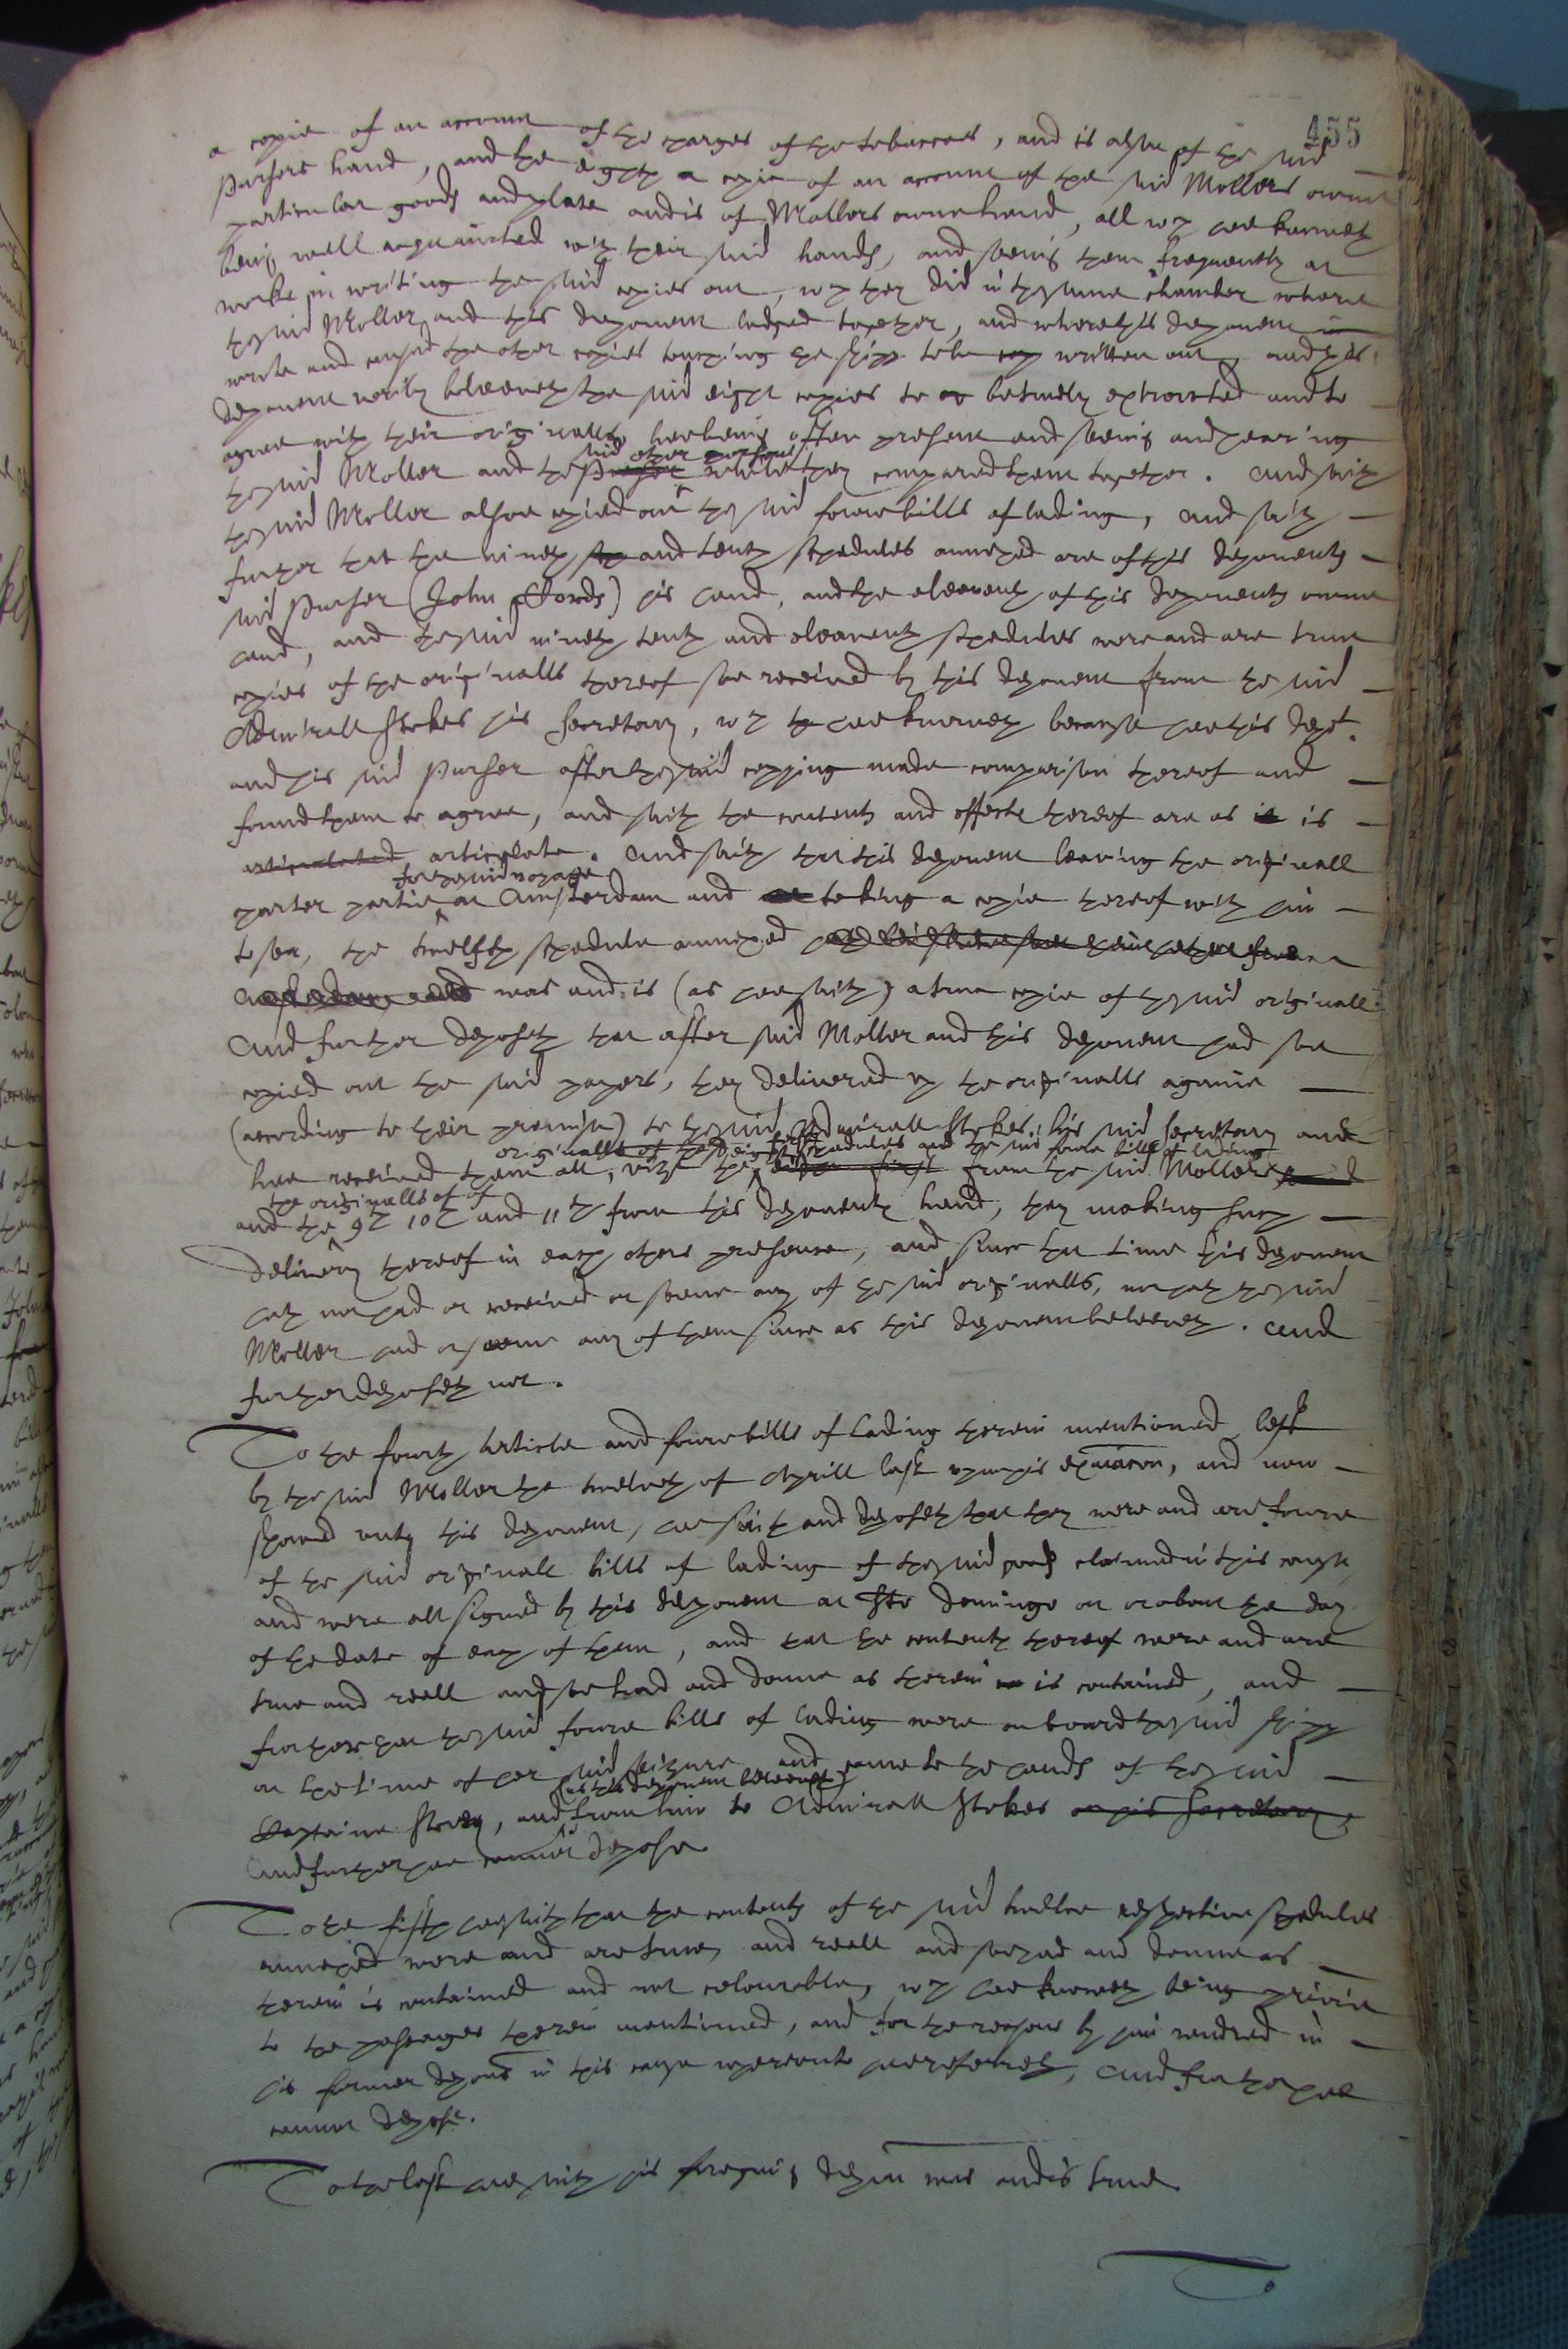 455
a copie of an accompt of the charges of the tobaccoes, and is alsoe of the said
Pursers hand, and the eighth a copie of an accompt of the said Mollers owne
particular goods and plate and is of Mollers owne hand, all wch hee knoweth
being well acquainted with their said hands, and seeing them frequently at
worke in writing the said copies out, wch they did in the same chamber where
the said Moller and this deponent lodged together, and where this deponent
wrote and caused the other copies touching the shipp to be written out, and this
deponent verily beleeveth the said eight copies to be truely extracted and to
agree with their originalls, hee being often present and seeing and hearing
said other persons
the said Moller and the Purser while they compared them together. And saith
the said Moller alsoe copied out the said foure bills of lading, And saith
further that the nineth and tenth schedules annexed are of this deponents
said Purser (John ffords) his hand, and the eleaventh of this deponents owne
hand, and the said nineth tenth and eleaventh schedules were and are true
copies of the originalls thereof soe received by this deponent from the said
Admirall Stokes his Secretary, wch hee knoweth because hee this dept.
and his said Purser after the said copying made comparison thereof and
found them to agree, and saith the contents and effecte thereof are as is
articulated articulate. And saith that this deponent leaving the originall
for the said voyage
charter partie at Amsterdam and taking a copie thereof with him
to sea, the twelfth schedule annexed
was and is (as hee saith) a true copie of the said originall.
And further deposeth that after said Moller and this deponent had soe
copied out the said papers, they delivered up the originalls againe
(according to their promise) to the said Admirall Stokes his said Secretary and
originalls of the eight first schedules and the said foure bills of lading
hee received them all, vizt the eight first from the said Moller and
the originalls of of
and the 9th 10th and 11th from this deponents hand, they making such
delivery thereof in each others presence, and since that time this deponent
hath not had or received or seene any of the said originalls, nor hath the said
Moller had or seene any of them since as this deponent beleeveth. And
further deposeth not.
To the fourth Article and foure bills of lading therein mentioned left
by the said Moller the twelveth of Aprill last upon his exaiacon, and now
showed unto this deponent, hee saith and deposeth that they were and are foure
of the said originall bills of lading of the said goods claimed in this cause,
and were all signed by this deponent at Sto Domingo on or about the day
of the date of each of them, and that the contents thereof were and are
true and reall and soe had and donne as therein is contained, and
further that the said foure bills of lading were on board the said shipp
at the time of her said seizure and came to the hands of the said
(as this deponent beleeveth)
Captaine Story, and from him to Admirall Stokes or his Secretary
And further hee cannot depose
To the fifth hee saith that the contents of the said twelve respective schedules
annexed were and are true, and reall and soe had and donne as
therein is contained and not colourable, wch hee knoweth being privie
to the passages therein mentioned, and for the reasons by him rendred in
his former depons in this cause whereunto hee referreth, And further hee
cannot depose.
To the last hee saith his foregoing depon was and is true